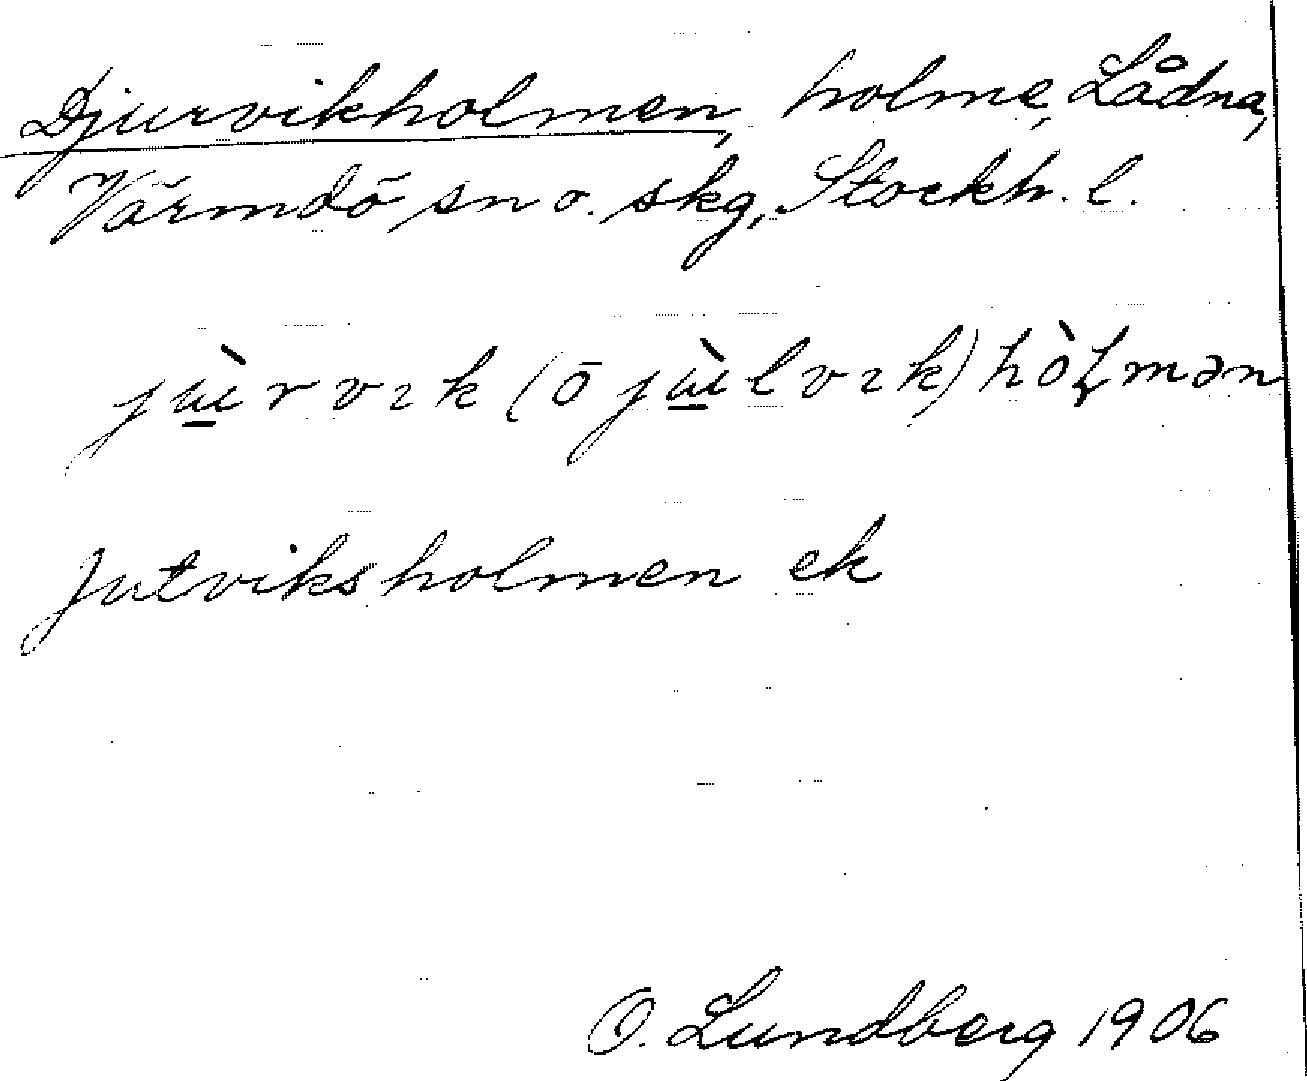 Djurvikholmen, holme, Lådna,
Värmdö sn o. skg, Stockh. l.
jɯ̀rvɪk (ō jɯ̀lvɪk) hòɭmən
Jutviksholmen ek
O. Lundberg 1906